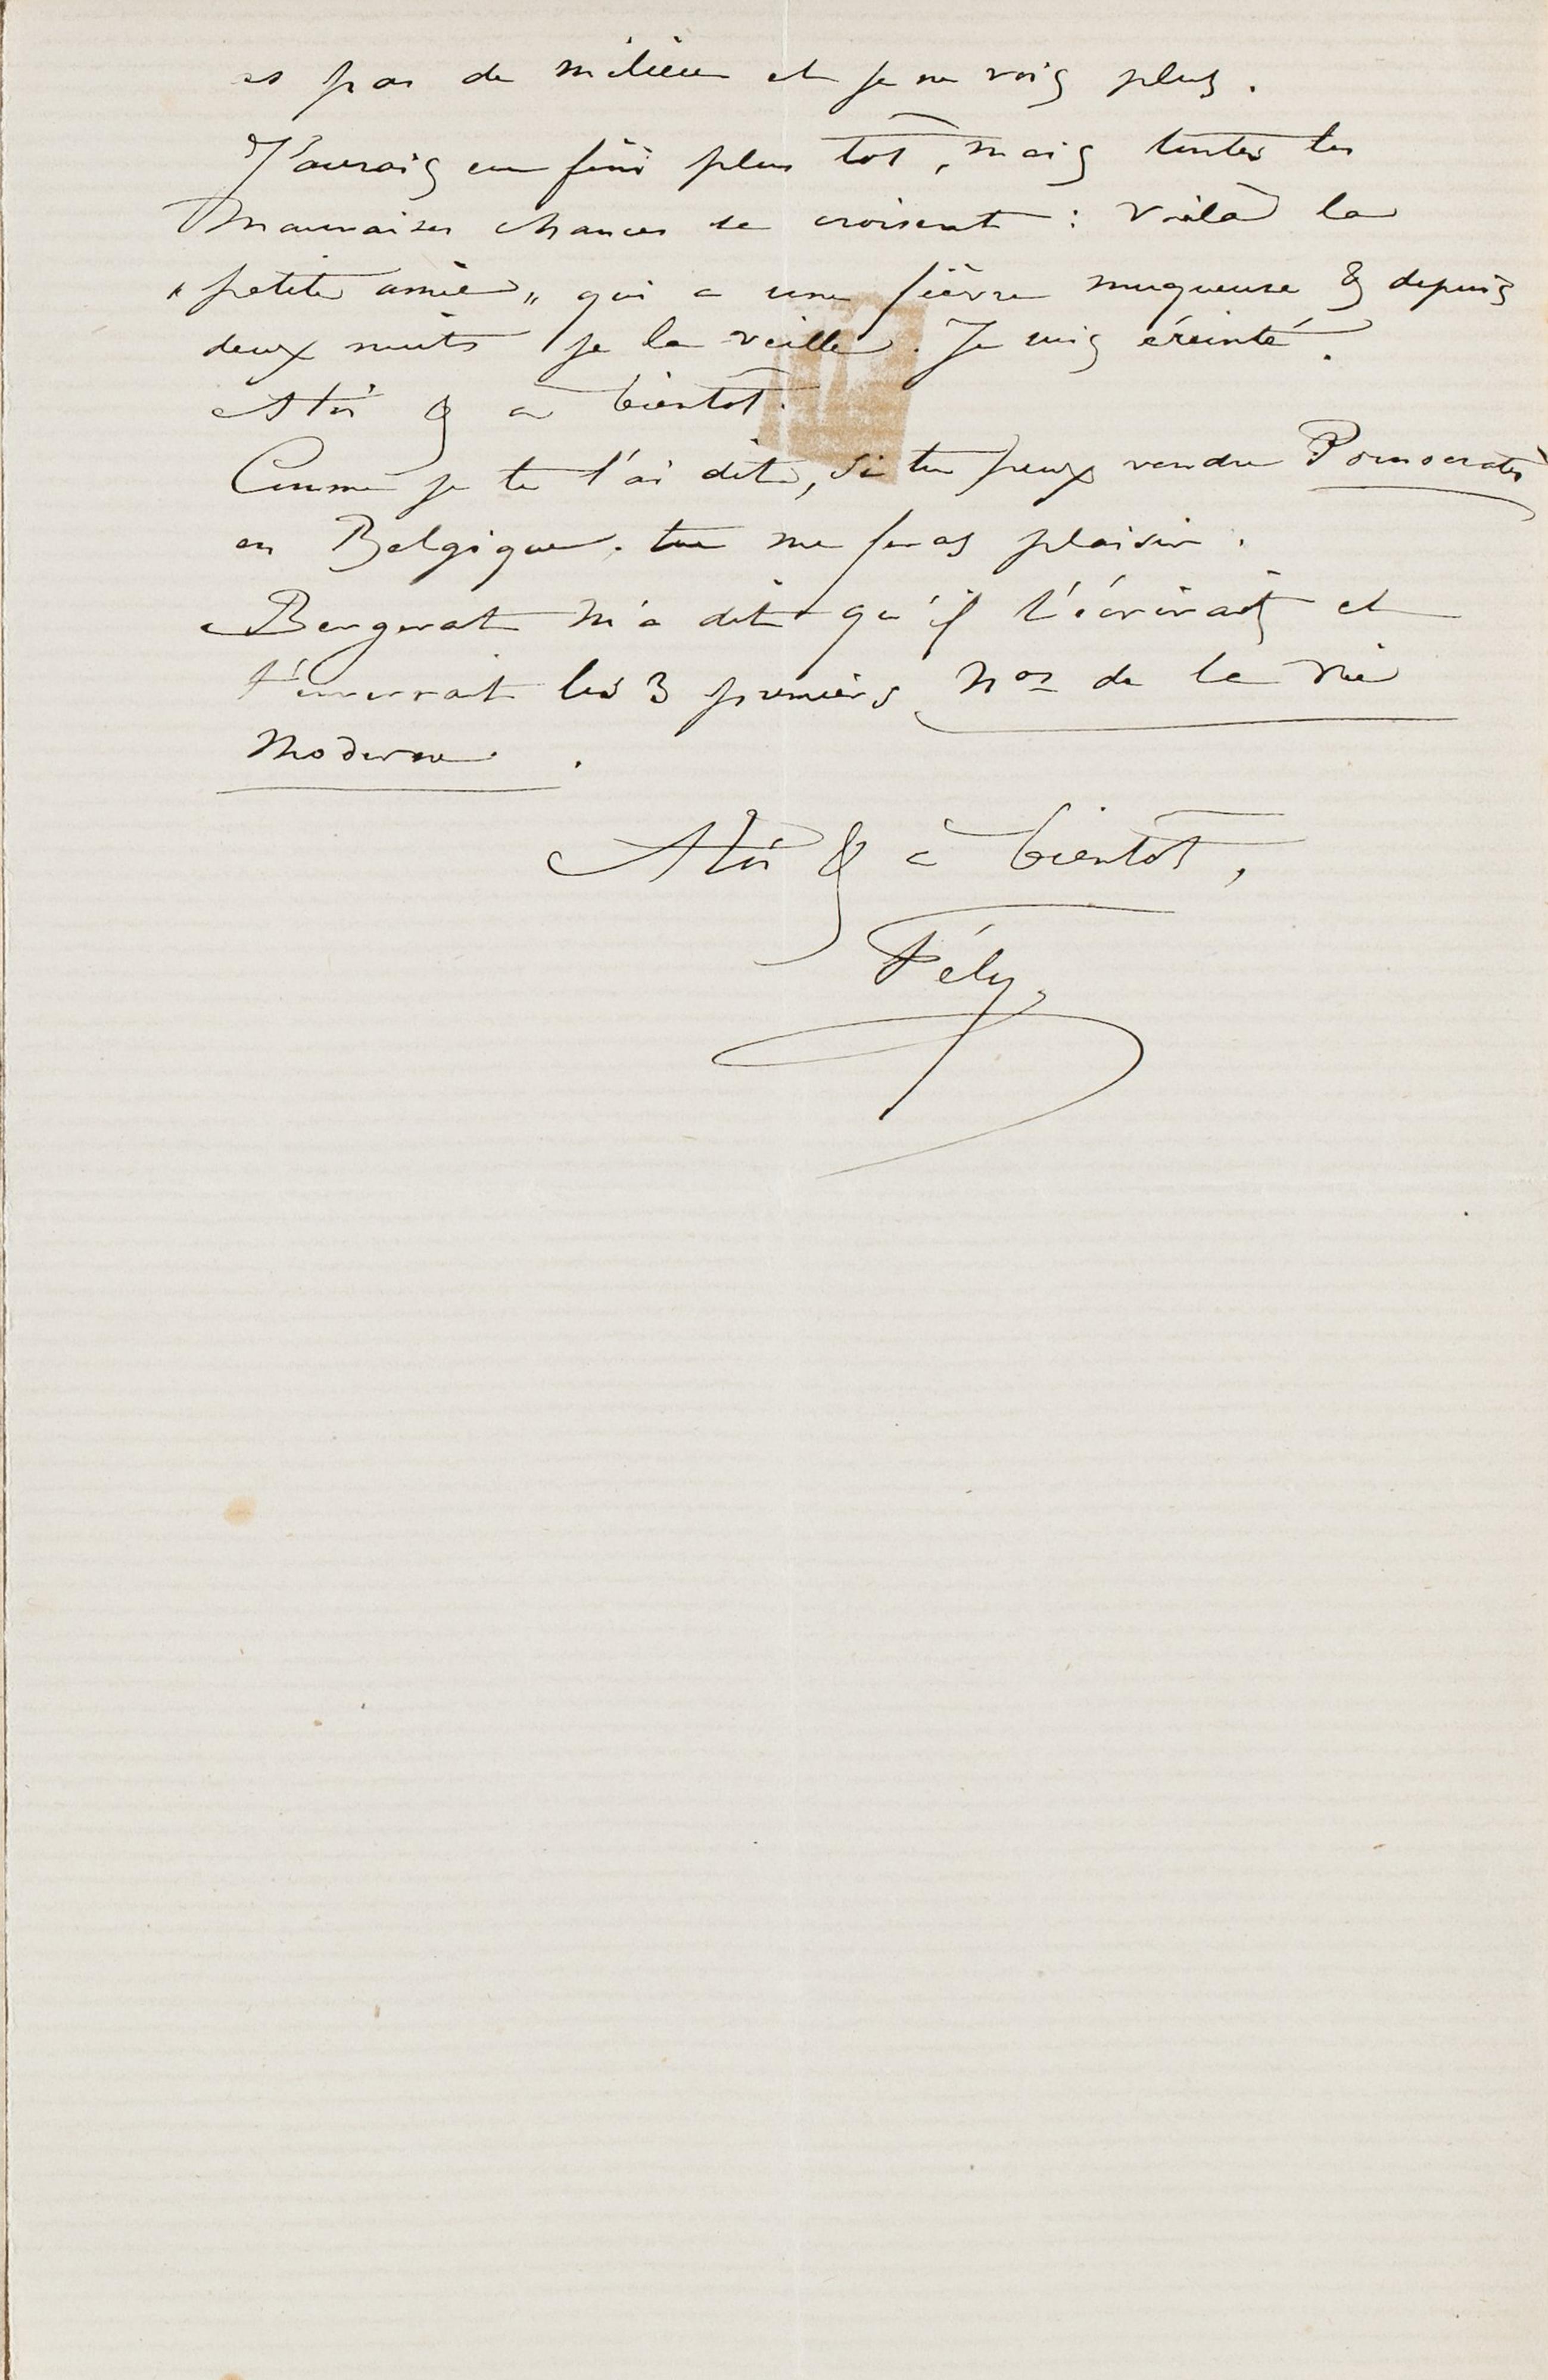 es pas de milieu et je ne vois plus.
J'aurais eu fini plus tôt, mais toutes les
mauvaises chances se croisent : voilà la
"petite amie" qui a une fièvre muqueuse & depuis
deux nuits je la veille. Je suis éreinté.
A toi & à bientôt.
Comme je te l'ai dit, si tu peux vendre Pornocratès
en Belgique. tu me feras plaisir.
Bergerat m'a dit qu'il t'écrirait et
t'enverrait les 3 premiers Nos de la Vie
Moderne.
A toi & à bientôt,
Fély